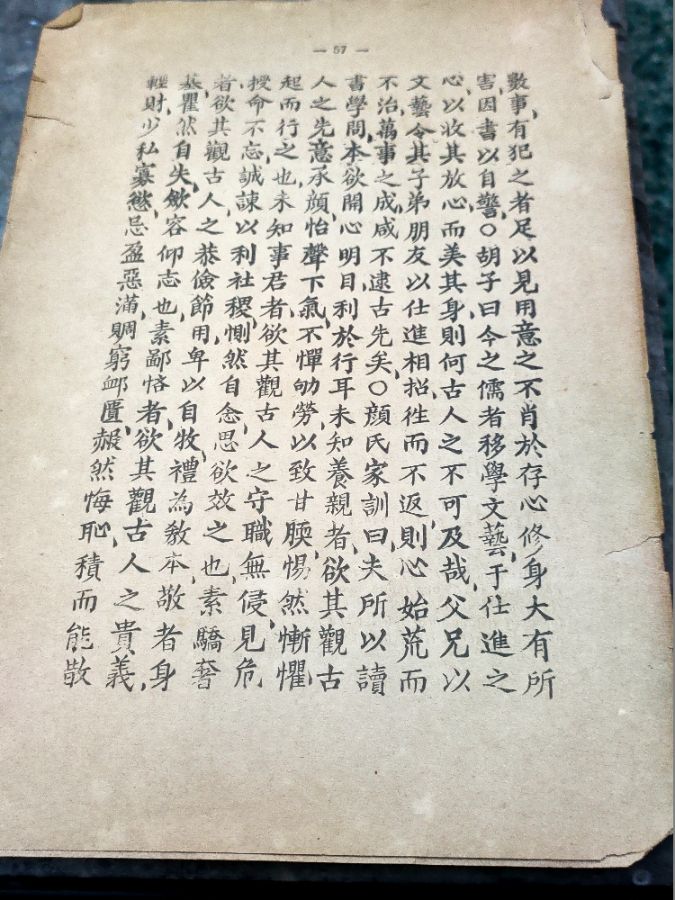 — 57 —
數事、有犯之者足以見用意之不肖於存心修身大有所
害、因書以自警〇胡子曰今之儒者移學文藝、于仕進之
心、以收其放心而美其身則何古人之不可及哉、父兄以
文藝令其子弟朋友以仕進相招徃而不返、則心始荒而
不治、萬事之成咸不逮古先矣〇顔氏家訓曰、夫所以讀
書學問、本欲開心明目利於行耳未知養親者、欲其觀古
人之先意承顔怡聲下氣、不憚劬勞、以致甘腝惕然慚懼、
起而行之也未知事君者、欲其觀古人之守職無侵、見危
授命不忘誠諫以利社稷、惻然自念思欲效之也、素驕奢
者欲其觀古人之恭儉節用、卑以自牧、禮為教本、敬者身
基、瞿然自失、歛容仰志也、素鄙悋者、欲其觀古人之貴義、
輕財、少私寡慾、忌盈惡滿、賙窮卹匱、赧然悔恥、積而能散